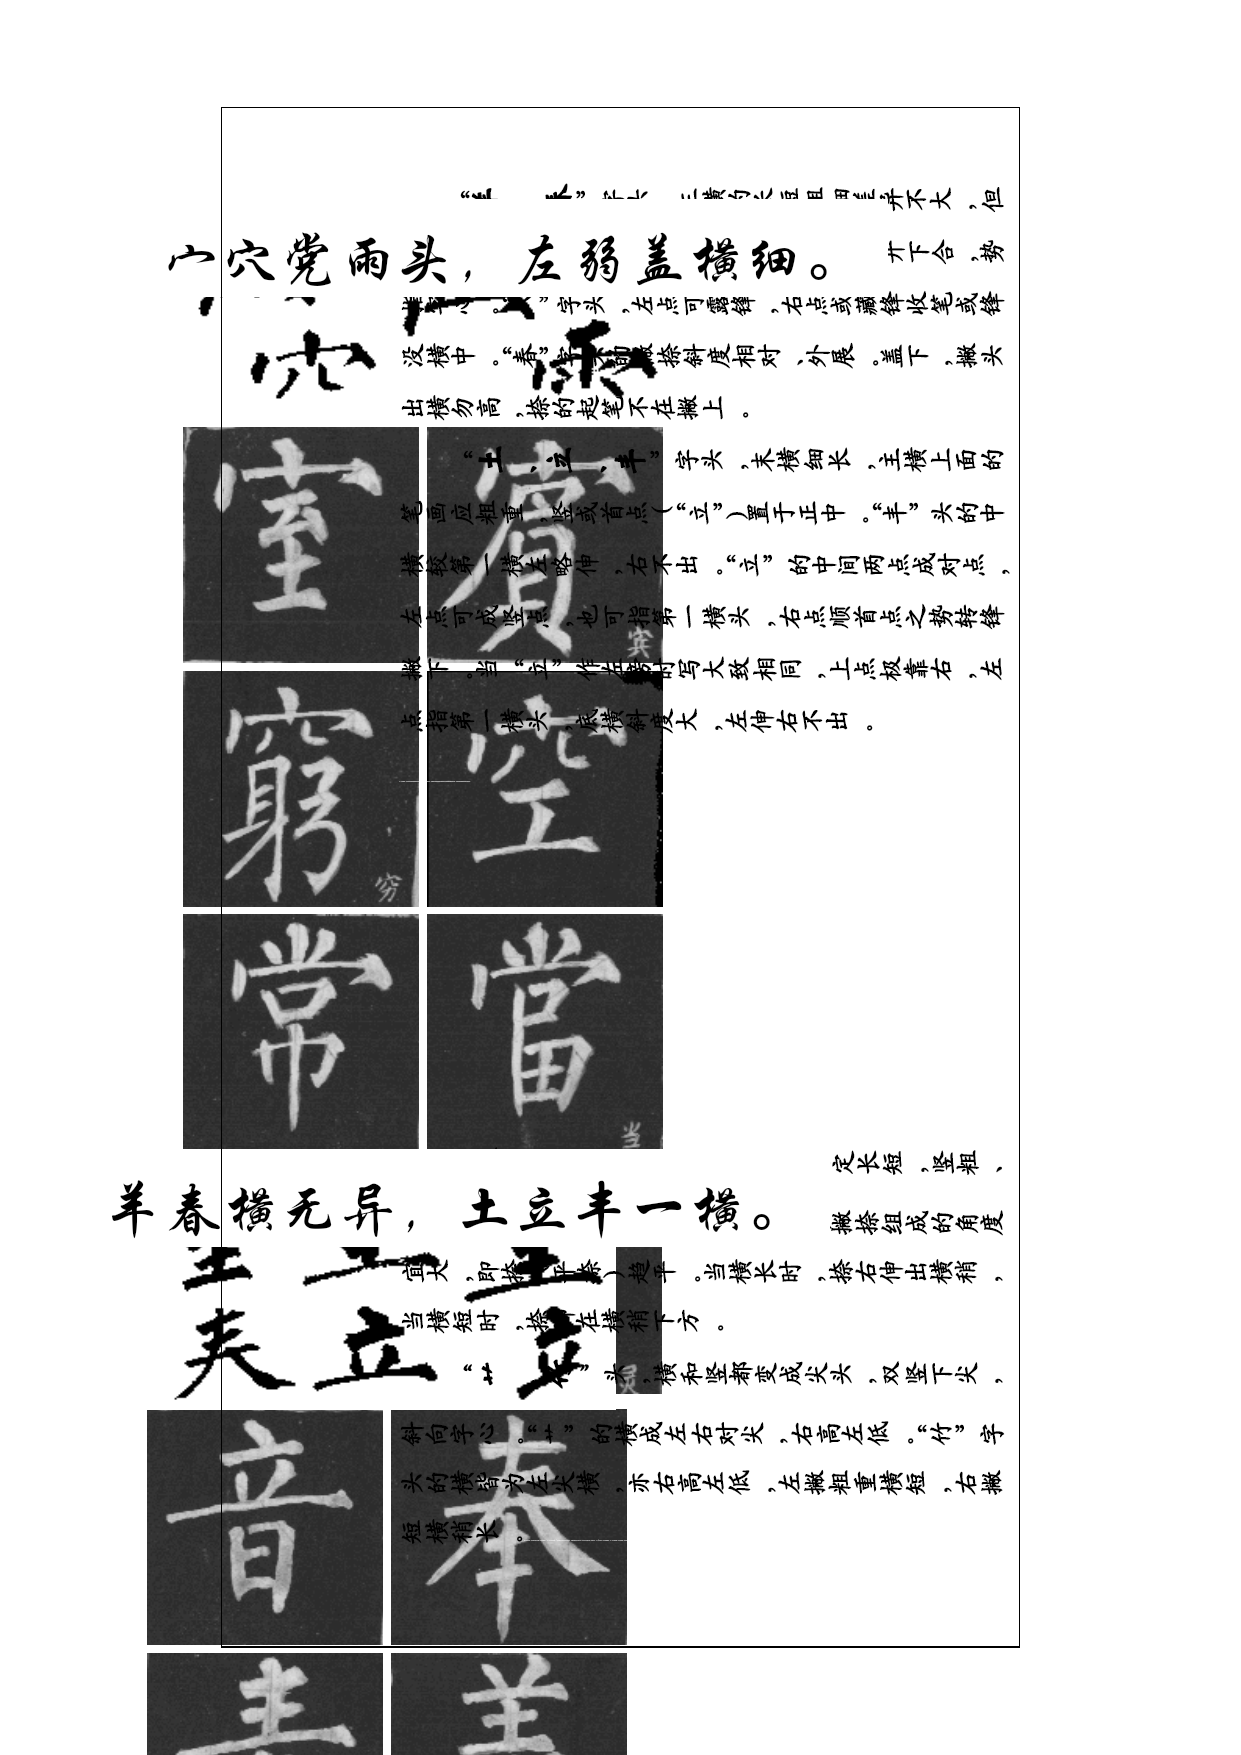 开不大，但
宀穴党雨头，左弱盖横细。
下合，势
”字头，左点可露锋，右点或藏锋收笔或锋
没横中。“春”字头的撇捺斜度相对、外展。盖下，撇头
出横勿高，捺的起笔不在撇上。
“土、立、丰”字头，末横细长，主横上面的
笔画应粗重，竖或首点（“立”）置于正中。“丰”头的中
横较第一横左略伸，右不出。“立”的中间两点成对点，
左点可成竖点，也可指第一横头，右点顺首点之势转锋
撇下。当“立”作左旁时写大致相同，上点极靠右，左
点指第一横头，底横斜度大，左伸右不出。
室 賓 宾
窮 穷 空
常 當 当
定长短，竖粗、
羊春横无异，土立丰一横。
撇捺组成的角度
宜大，即捺（平捺）趋平。当横长时，捺右伸出横稍，
当横短时，捺在横稍下方。
头，横和竖都变成尖头，双竖下尖，
斜向字心。“艹”的横成左右对尖，右高左低。“竹”字
头的横皆为左尖横，亦右高左低，左撇粗重横短，右撇
短横稍长。
音 奉